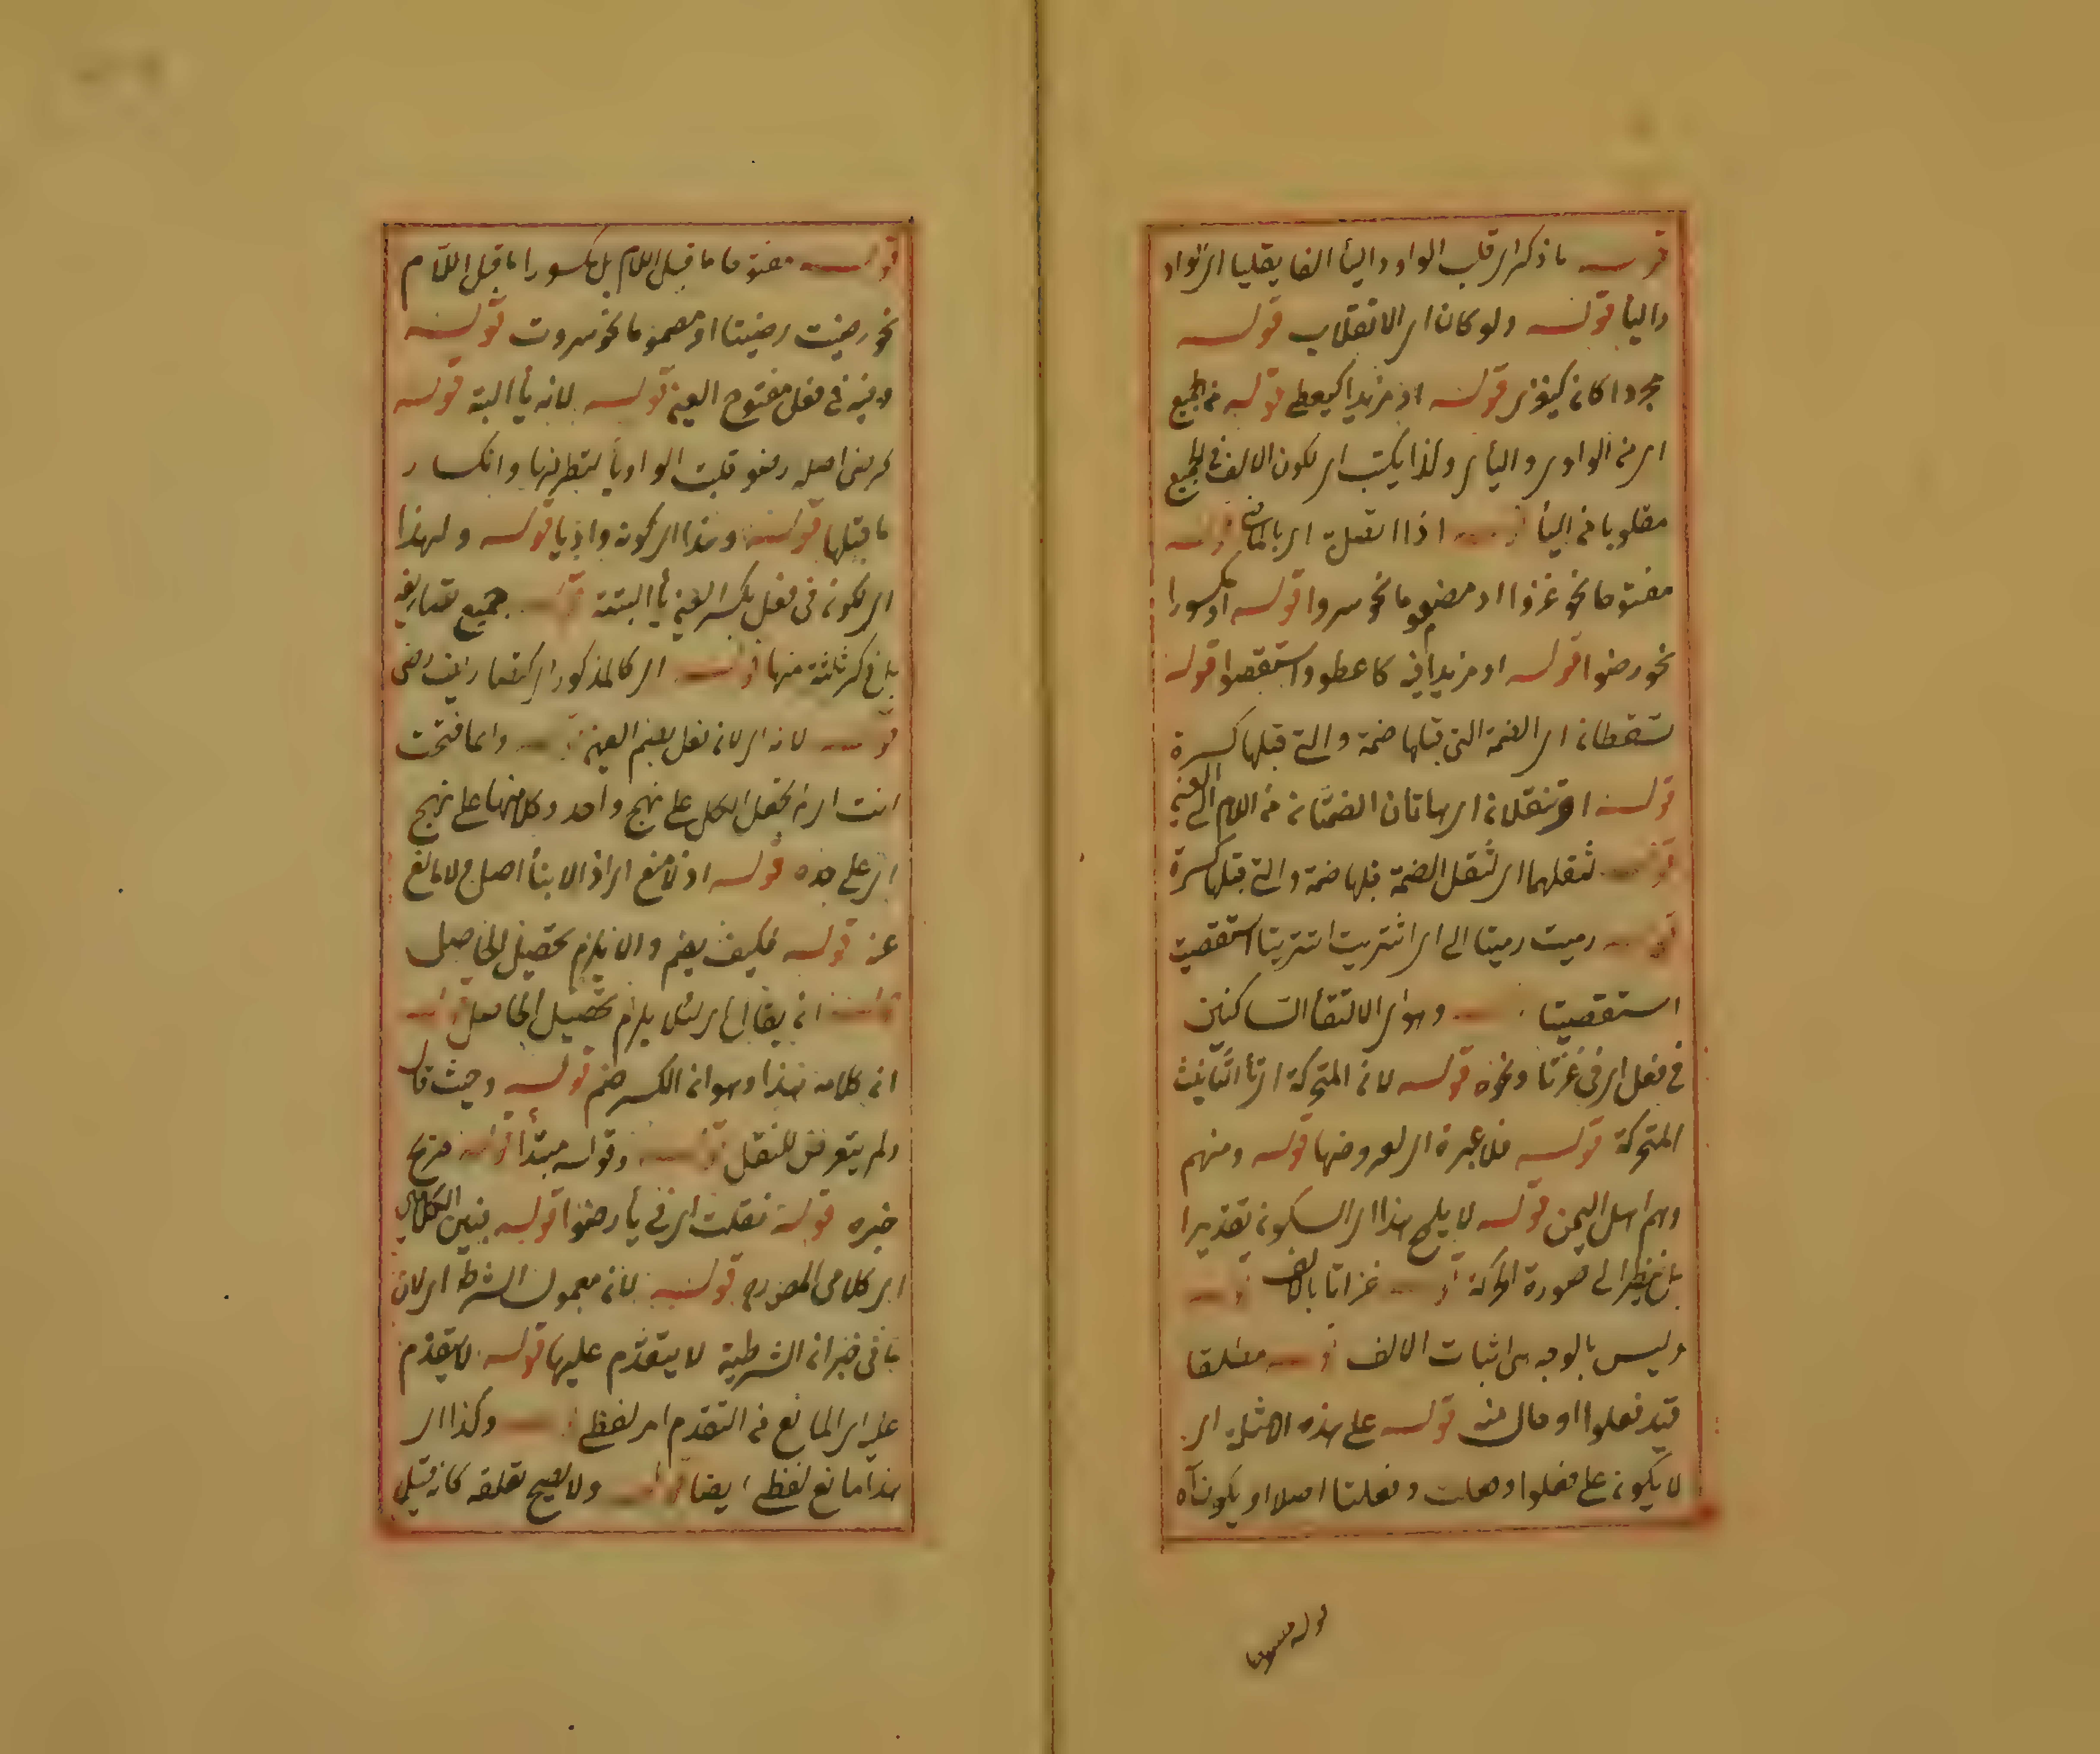 قوله ما ذكر اى قلب الواو والياء الفا يقلبا اى الواو
والياء قوله ولو كان اى الانقلاب قوله
مجردا كان كيغزى قوله او مزيدا كيعطى قوله فى الجميع
اى من الواوى واليائى وكذا يكتب اى لكون الالف فى الجميع
مقلوبا من الياء قوله اذا اتصلت اى قوله
مفتوحا نحو غزوا او مضموما نحو سروا قوله او مكسورا
نحو رضوا قوله او مزيدا فيه كاعطوا واستقصوا قوله
تسقطان اى الضمة التى قبلها ضمة والتى قبلها كسرة
قوله او تنقلان اى هاتان الضمتان من اللام الى العين
قوله لثقلهما اى لثقل الضمة قبلها ضمة والتى قبلها كسرة
قوله رميت رمينا الى اى اشتريت اشترينا استقصيت
استقصينا قوله وهو اى الالتقاء الساكنين
فى فعل اى فى غزتا ونحوه قوله لان المتحركة اى تاء التأنيث
المتحركة قوله فلا عبرة اى لعروضها قوله ومنهم
وهم اهل اليمن قوله لا يلمح هذا اى السكون تقديرا
بل ينظر الى صورة الحركة قوله غزاتا بالالف قوله
وليس بالوجه اى اثبات الالف قوله مطلقا
قيد فعلوا او حال منه قوله على هذه الامثلة اى
لا يكون على فعلوا وفعلت وفعلنا اصلا او يكون آه
قوله مفتوحا
قوله مفتوحا ما قبل اللام بل مكسورا ما قبل اللام
نحو رضيت رضينا او مضموما نحو سروت قوله
وفيه فى فعل مفتوح العين قوله لانه يأ البتة قوله
كرضى اصله رضو قلبت الواو يأ لتطرفها وانكسار
ما قبلها قوله وهذا اى كونه واويا قوله ولهذا
اى لكونه فى فعل بكسر العين يأ البتة قوله جميع تصاريفه
بل ذكر ثلثة منها قوله اى كالمذكور اى كتصاريف رضى
قوله لانه اى لان فعل بضم العين قوله وانما فتحت
انت اى لم تجعل الكل على نهج واحد وكلا منها على نهج
اى على حده قوله اذ لا منع اى اذ الابناء اصل ولا مانع
عنه قوله فكيف يضم والا يلزم تحصيل الحاصل
قوله ان يقال اى لئلا يلزم تحصيل الحاصل قوله
ان كلامه هذا وهو ان الكسر ضم قوله وحيث قال
ولم يتعرض للنقل قوله وقوله مبتدأ قوله صريح
خبره قوله نقلت اى فى يأ رضوا قوله فبين الكلامين
اى كلامى المصدر قوله لانه معمول الشرط اى لان
ما فى خبر ان الشرطية لا يتقدم عليها قوله لا يتقدم
عليه اى المانع من التقدم امر لفظى قوله وكذا اى
هذا مانع لفظى ايضا قوله ولا يصح تعلقه كان قبل